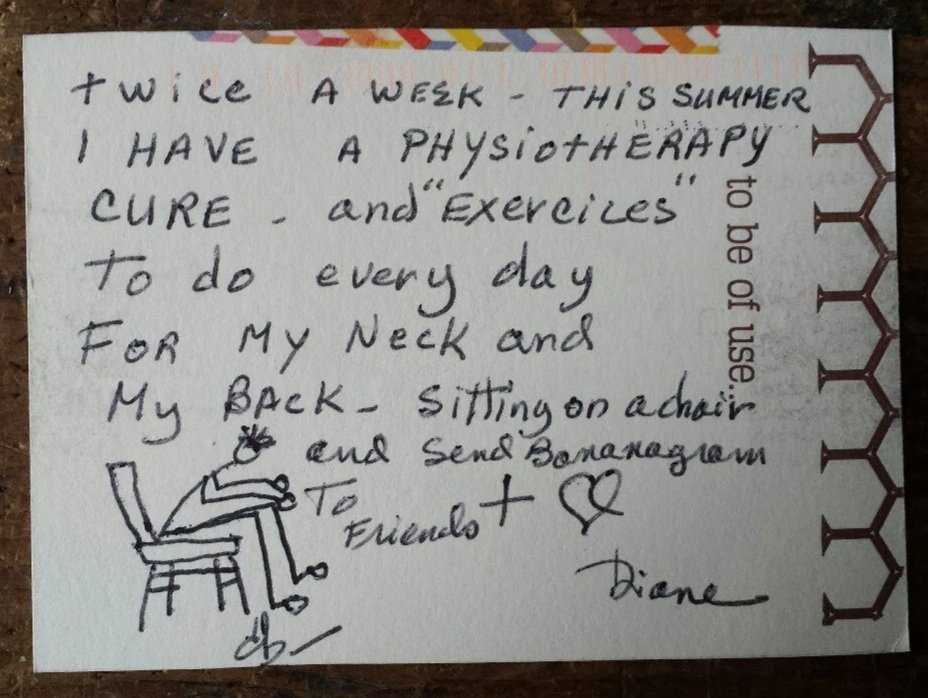 twice A WEEK - THIS SUMMER
I HAVE A PHYSIOTHERAPY
CURE - and "Exercices"
To do every day
FOR MY Neck and
My BACK - Sitting on a chair
and Send Bananagram
To Friends + ♡
Diane
db
to be of use.